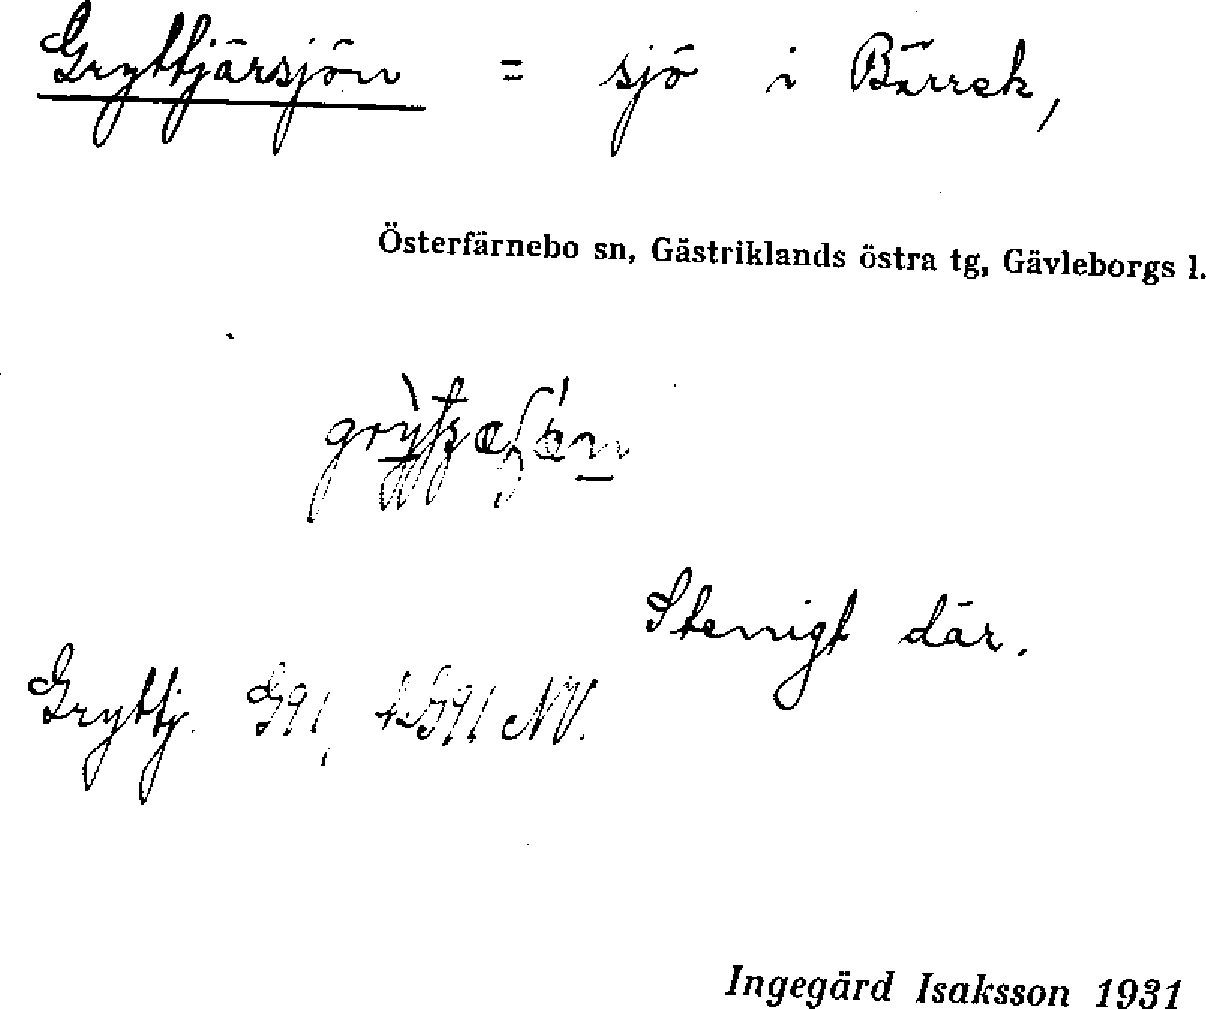 Gryttjärsjön = sjö i Bärrek,
Österfärnebo sn, Gästriklands östra tg, Gävleborgs l.
Stenigt där.
Gryttj. G91, NV.
Ingegärd Isaksson 1931